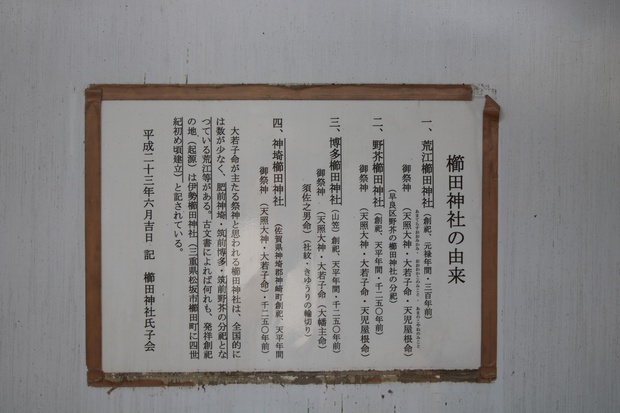 櫛田神社の由来
一、荒江櫛田神社(創祀、元禄年間・三百年前)
御祭神 (天照大神・大若子命・天児屋根命)
(早良区野芥の櫛田神社の分祀)
二、野芥櫛田神社(創祀、天平年間・千二五〇年前)
御祭神 (天照大神・大若子命・天児屋根命)
三、博多櫛田神社(山笠)創祀、天平年間・千二五〇年前)
御祭神 (天照大神・大若子命(大幡主命)
須佐之男命)(社紋・きゆうりの輪切り)
四、神埼櫛田神社 (佐賀県神埼郡神崎町創祀 天平年間
御祭神 (天照大神・大若子命)・千二五〇年前)
大若子命が主たる祭神と思われる櫛田神社は、全国的に
は数が少なく、肥前神埼・筑前博多・筑前野芥の分祀とな
つている荒江等がある。古文書によれば何れも、発祥創祀
の地(起源)は伊勢櫛田神社(三重県松坂市櫛田町に四世
紀初め頃建立)と記されている。
平成二十三年六月吉日 記 櫛田神社氏子会